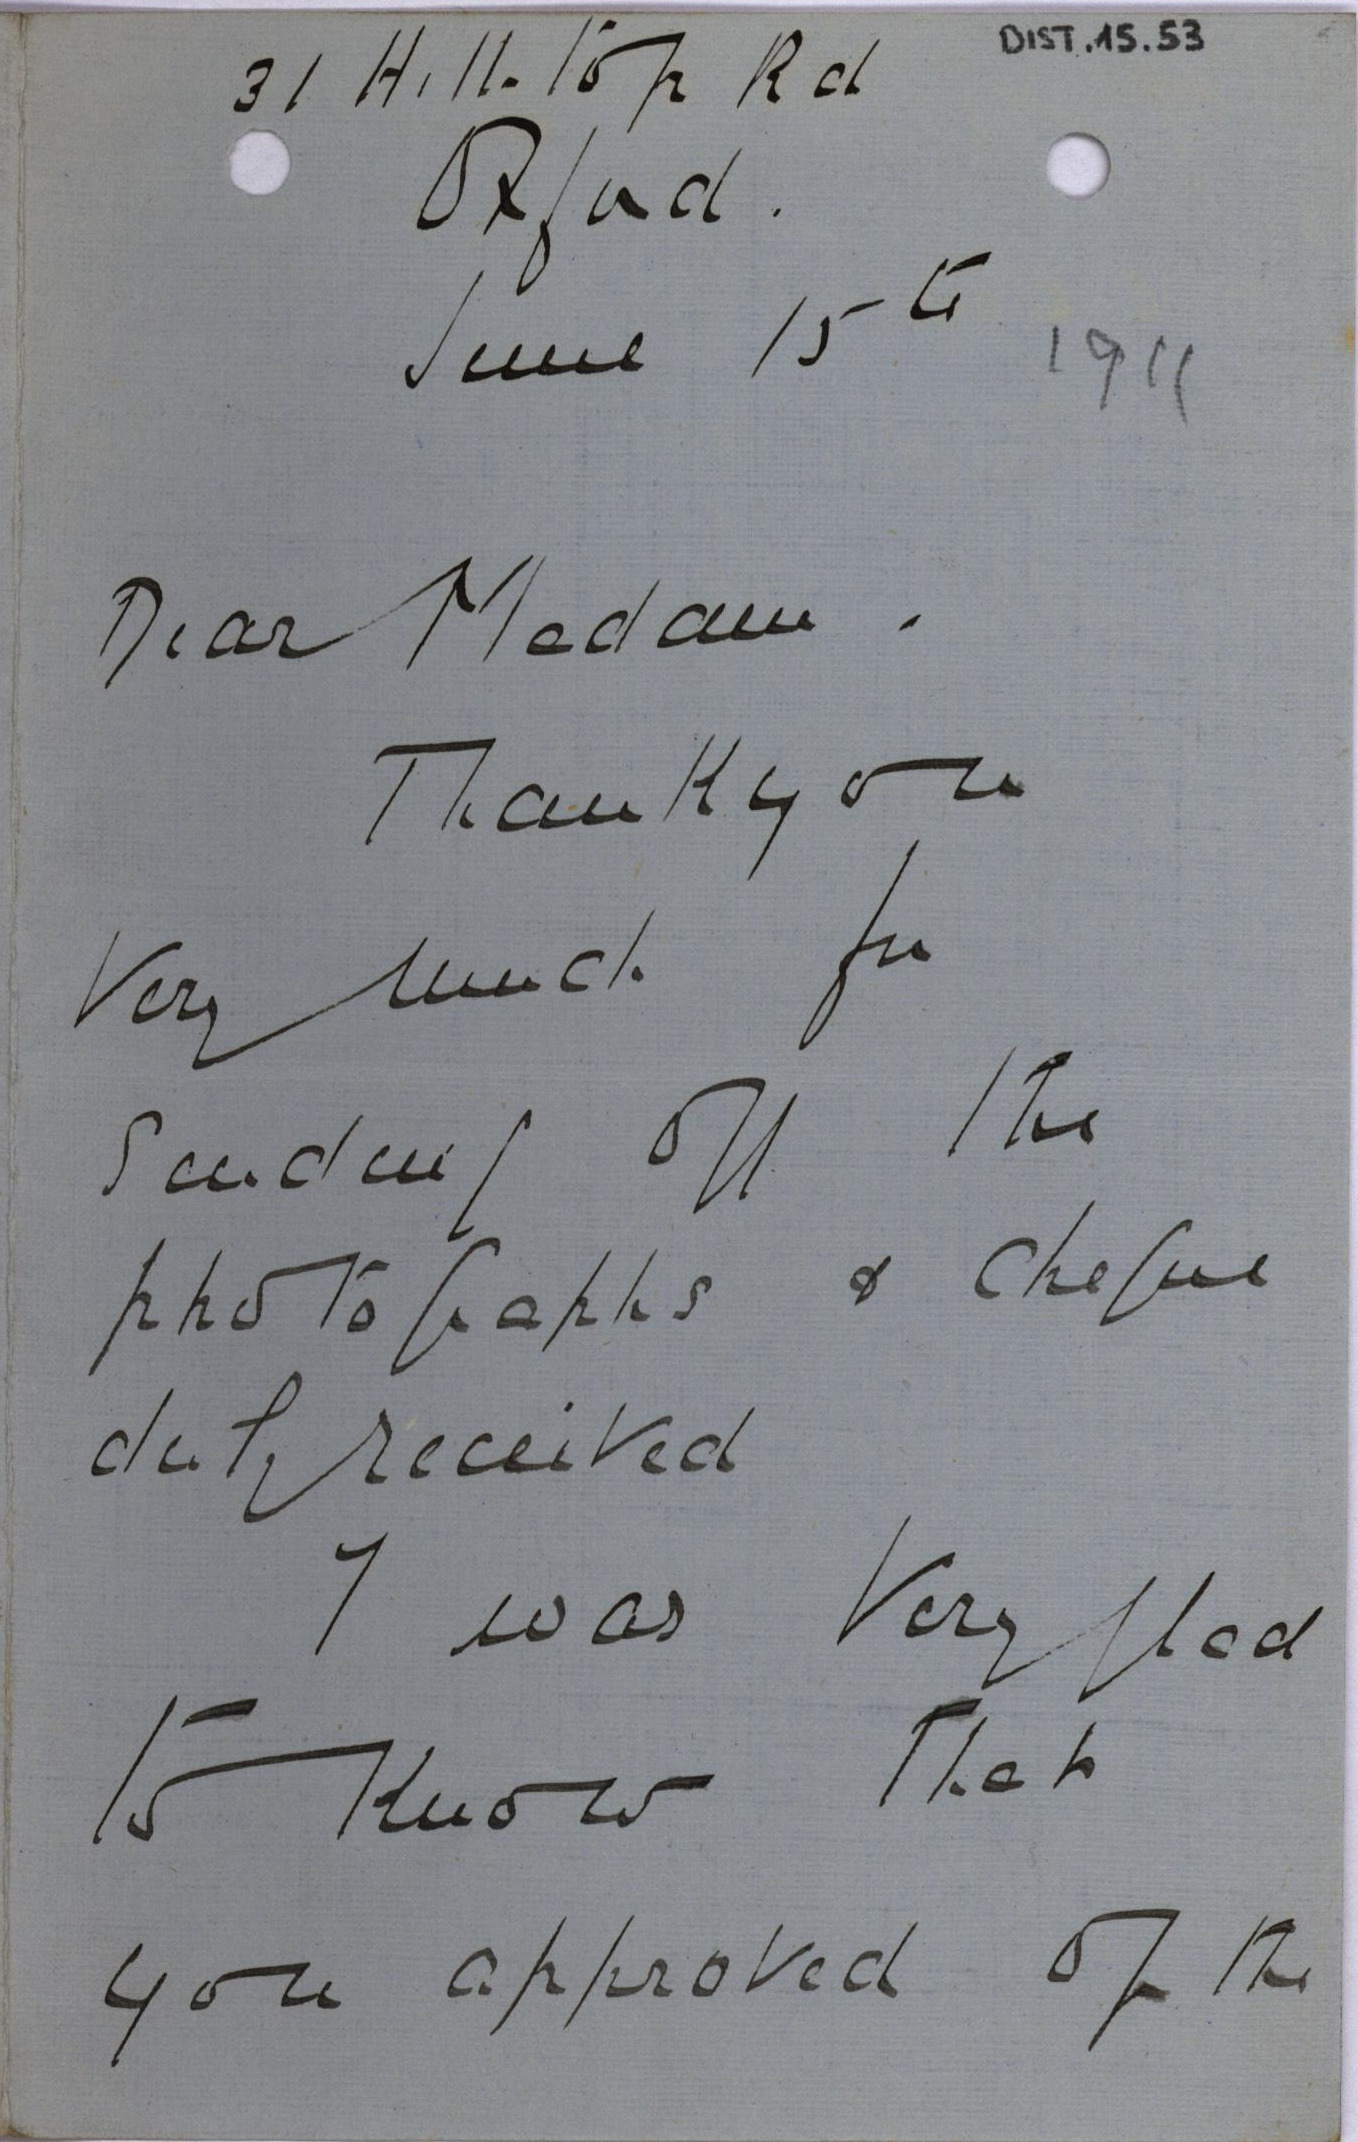 DIST.15.53
31 Hill Top Rd
Oxford.
June 15th 1911
Dear Madam.
Thank you
Very much for
sending off the
photographs & cheque
duly received
I was very glad
to know that
you approved of the